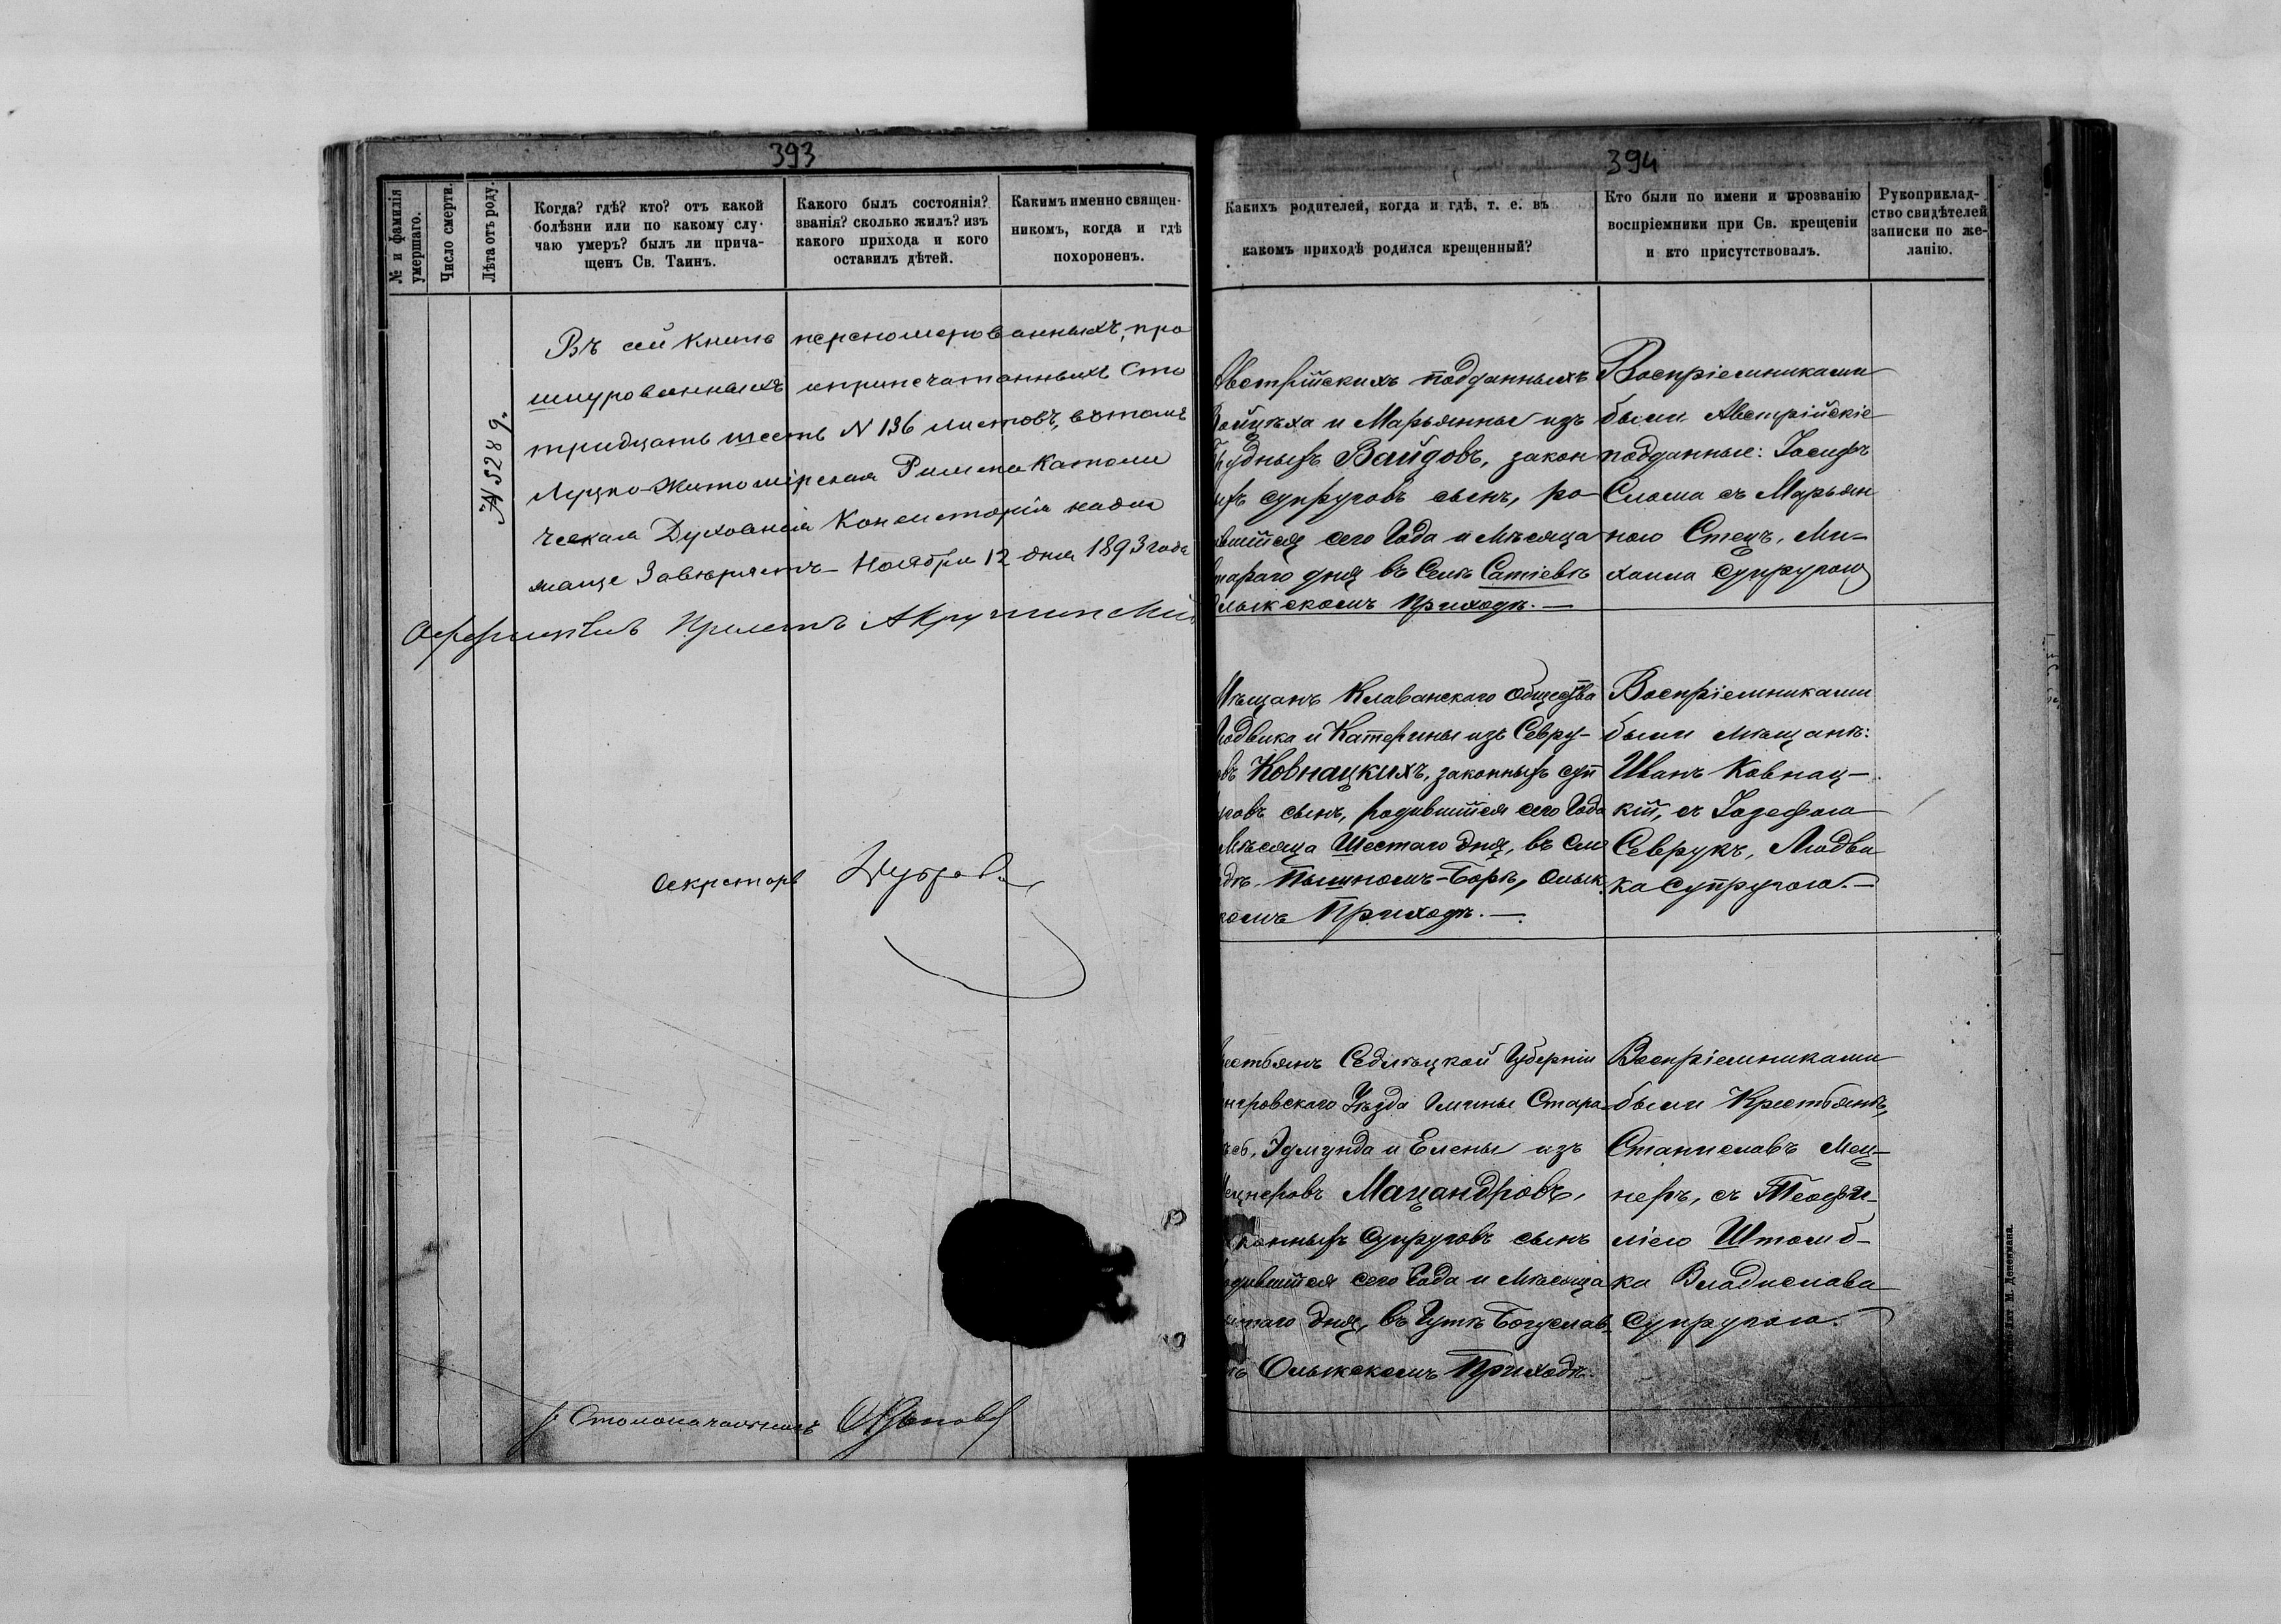 393
№ и фамилія умершаго.
Число смерти.
Лѣта отъ роду.
Когда? гдѣ? кто? отъ какой
болѣзни или по какому слу-
чаю умеръ? былъ ли прича-
щенъ Св. Таинъ.
Какого былъ состоянія?
званія? сколько жилъ? изъ
какого прихода и кого
оставилъ дѣтей.
Какимъ именно священ-
никомъ, когда и гдѣ
похороненъ.
№ 5289.
Въ сей книгѣ переномерованныхъ, про
шнурованныхъ и припечатанныхъ Сто
тридцать шесть N 136 листовъ, въ томъ
Луцко-Житомірская Римско Католи
ческая Духовная Консисторія надле
жаще Завѣряетъ Ноября 12 дня 1893 года
Секретарь
Столоначальникъ
394
Какихъ родителей, когда и гдѣ, т. е. въ
какомъ приходѣ родился крещенный?
Кто были по имени и прозванію
воспріемники при Св. крещеніи
и кто присутствовалъ.
Рукоприклад-
ство свидѣтелей
записки по же-
ланію.
Австрійскихъ подданныхъ
Войцѣха и Марьянны изъ
Вайдовъ, закон
супруговъ сынъ, ро
вшійся сего Года и Мѣсяца
тараго дня въ Селѣ Сатіевѣ
Олыкскомъ Приходѣ.—
Воспріемниками
были Австрійскіе
подданные: Іосифъ
Слома съ Марьян
ною Стецъ, Ми-
хаила Супругою
Мѣщанъ Клаванскаго Общества
Людвика и Катерины изъ Севру-
овъ Ковнацкихъ, законныхъ суп
уговъ сынъ, родившійся сего Года
Мѣсяца Шестаго дня, въ Сло
дѣ Пышномъ-Борѣ, Олык
комъ Приходѣ.—
Воспріемниками
были Мѣщанѣ:
Иванъ Ковнац-
кій, съ Іозефою
Севрукъ, Людви
ка Супругою.—
естьянъ Сѣдлѣцкой Губерніи
нгровскаго Уѣзда Гмины Стара
весь, Эдмунда и Елены изъ
Мецнеровъ Мацандровъ,
конныхъ Супруговъ сынъ
одившійся сего Года и Мѣсяца
таго дня, въ Гутѣ Богуслав
въ Олыкскомъ Приходѣ.
Воспріемниками
были Крестьянѣ,
Станиславъ Мец-
неръ, съ Теофи-
ліею Штомб-
ка Владислава
Супругою.
М. Дененмана.